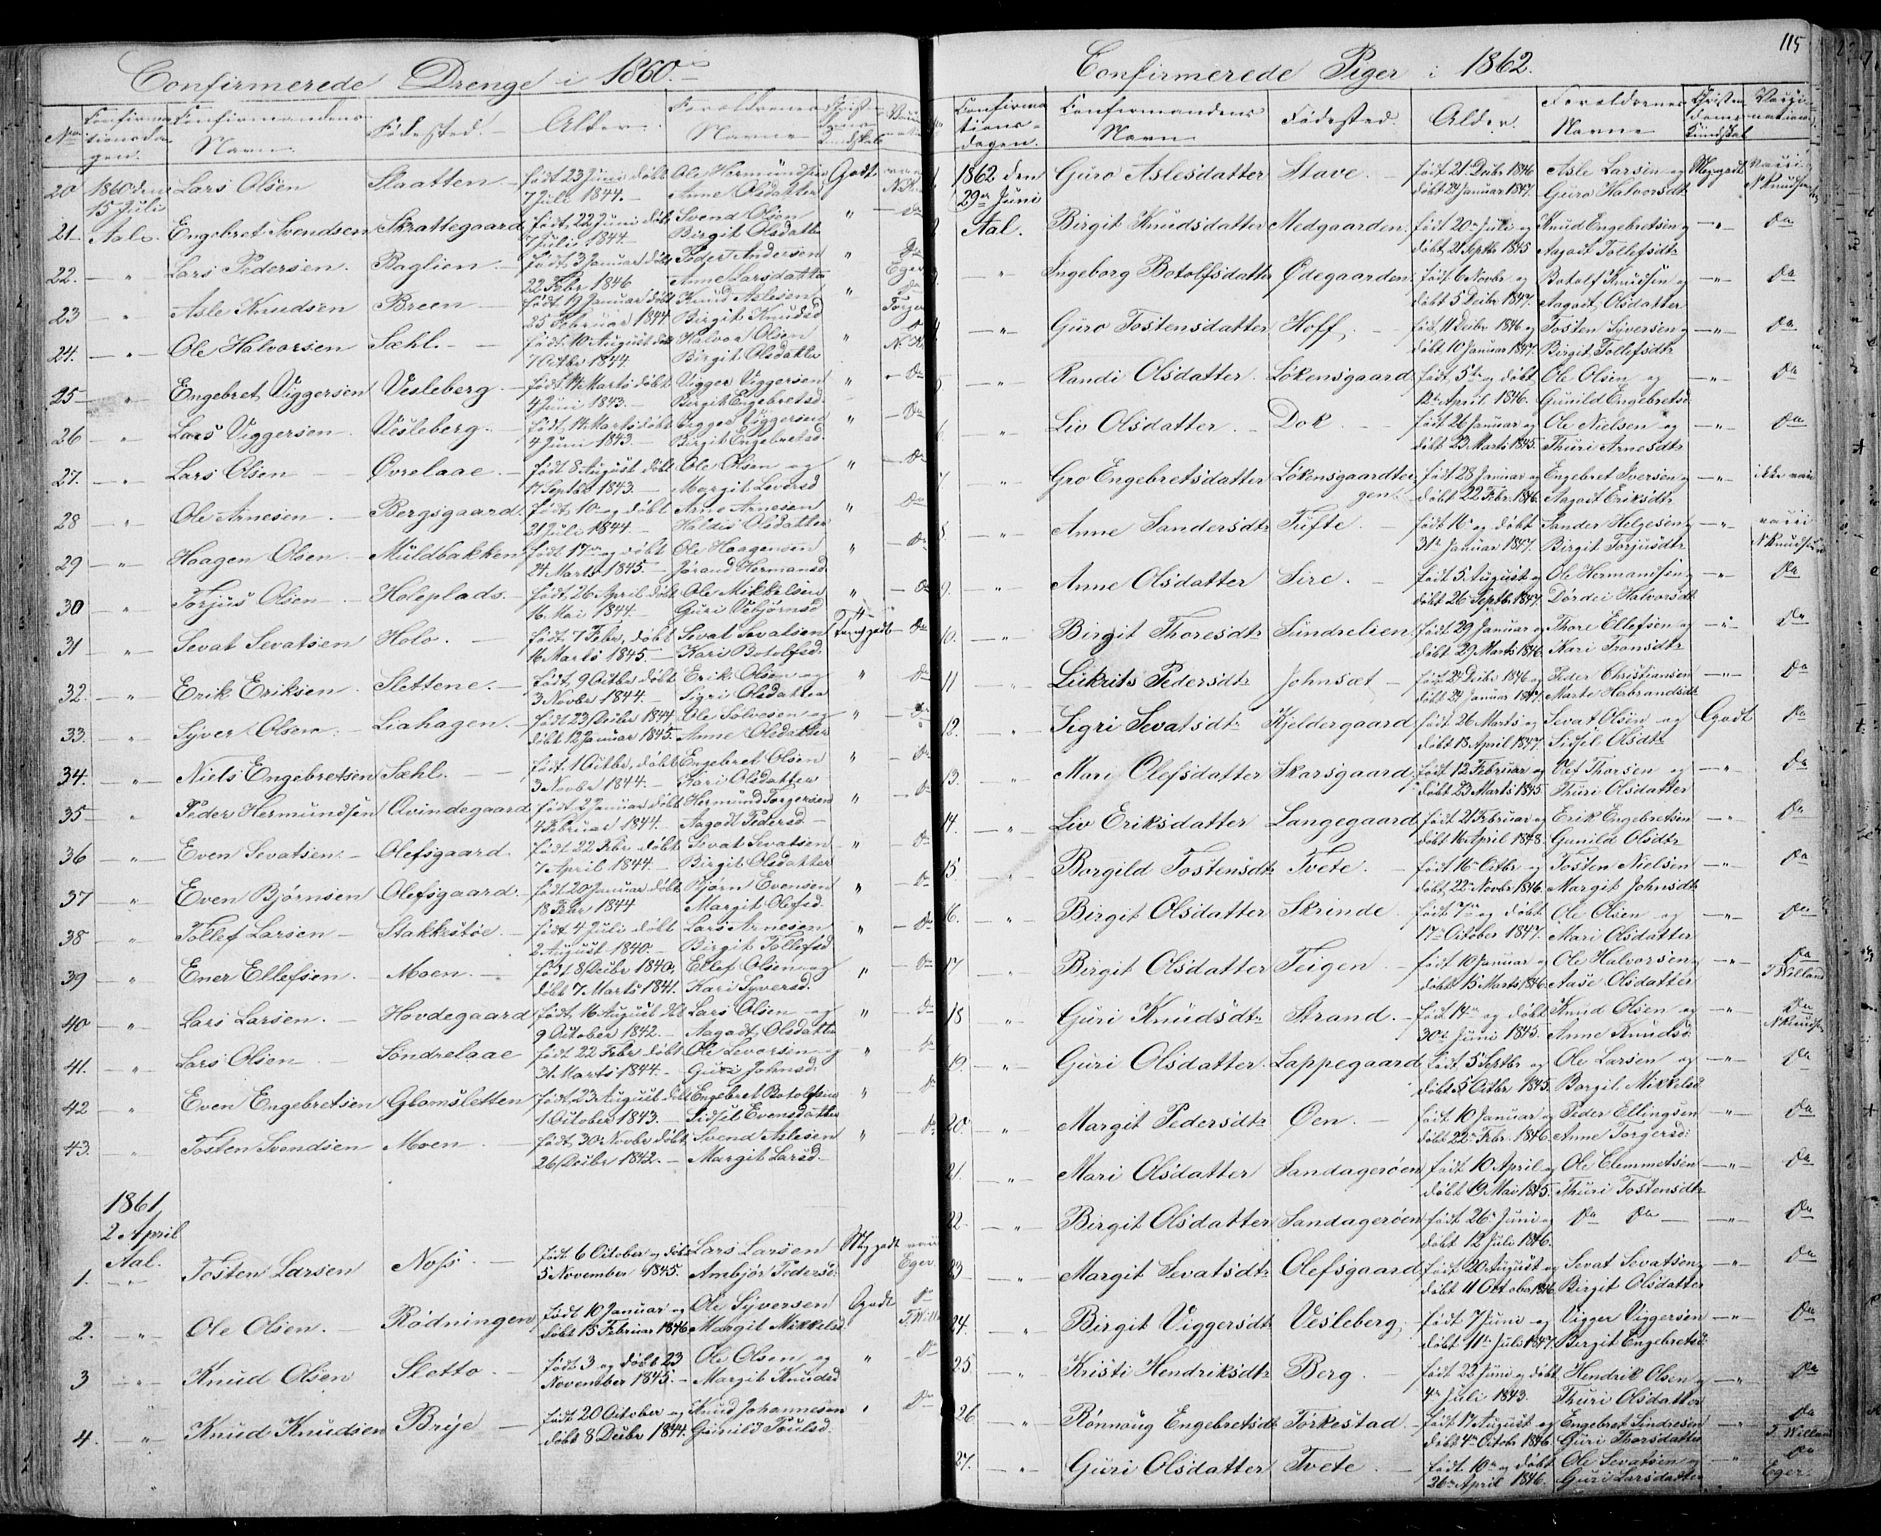 Confirmerede Drenge i 1860.
No Confirmationsdagen. Confirmandens Navn. Fødested. Alder. Forældrenes Navne Christendoms Kundskab
20 1860 den 15 Juli Lars Olsen Slaatten født 23 Juni døbt 7 Juli 1844. Ole Hermundsen Anne Olsdatter Godt
21 Aal. Engebret Svendsen Skrattegaard født 22 Juni døbt 7 Juli 1844. Svend Olsen Birgit Olsdatter " Do
22. " Lars Pedersen. Baglien født 3 Januar døbt 22 Febr 1846 Peder Andersen Anne Larsdatter " Do Eger
23 " Asle Knudsen Breen født 19 Januar døbt 25 Februar 1844 Knud Aslesen Birgit Knudsd " Do
24. " Ole Halvorsen Sæhl. født 10 August døbt 7 Octbr 1844. Halvor Olsen Birgit Olsdatter "
25 " Engebret Viggersen Vesleberg født 14 Marts døbt 4 Juni 1843. Vigger Viggersen Birgit Engebretsd. " Do
26 " Lars Viggersen Vesleberg. født 14 Marts døbt 4 Juni 1843 Vigger Viggersen Birgit Engebretsd. " Do
27. " Lars Olsen Øvrelaae. født 8 August døbt 17 Septbr 1843. Ole Olsen og Margit Leversd " Do
28 " Ole Arnesen Bergsgaard. født 10 og døbt 21 Juli 1844. Arne Arnesen Haldis Olsdatter " Do
29 " Haagen Olsen Muldbakken født 17de og døbt 24 Marts 1845. Ole Haagensen Jørand Hermansd " Do
30 " Torjus Olsen Holeplads. født 26 April døbt 16 Mai 1844. Ole Mikkelsen Guri Vebjørnsd " Do
31 " Sevat Sevatsen Holo. født 7 Febr, døbt 16 Marts 1845. Sevat Sevatsen Kari Botolfsd. Temgodt Do
32. " Erik Eriksen Slettene. født 9 Octbr døbt 3 Novbr 1844. Erik Olsen og Sigri Olsdatter " Do
33. " Syver Olsen Liahagen. født 23 Decbr 1844 døbt 12 Januar 1845. Ole Solvesen og Anne Olsdatter " Do
34. " Niels Engebretsen Sæhl. født 1 Octbr, døbt 3 Novbr 1844. Engebret Olsen Kari Olsdatter " Do
35 " Peder Hermundsen Qvindegaard født 2 Januar døbt 4 Februar 1844. Hermund Torgersen Aagot Pedersd. " Do
36 " Even Sevatsen. Olefsgaard. født 22 Febr døbt 7 April 1844. Sevat Sevatsen Birgit Olsdatter " Do
37 " Even Bjørnsen Olefsgaard. født 20 Januar døbt 18 Febr 1844 Bjørn Evensen Margit Olefsd. " Do
38 " Tollef Larsen Stakkstøe. født 4 Juli døbt 2 August 1840. Lars Arnesen Birgit Tollefsd " Do
39 " Ener Ellefsen. Moen. født 8 Decbr 1840, døbt 7 Marts 1841. Ellef Olsen og Kari Syversd. " Do
40 " Lars Larsen. Hovdegaard født 16 August døbt 9 October 1842. Lars Olsen og Aagodt Olsdatter " Do
41. " Lars Olsen Søndrelaae født 22 Febr døbt 31 Marts 1844. Ole Levorsen og Guri Johnsd " Do
42 " Even Engebretsen Glomsletten født 23 August døbt 1 October 1843. Engebret Botolfsen Sidsel Evensdatter " Do
43. " Tosten Svendsen Moen. født 30 Novbr døbt 26 Decbr 1842. Svend Aslesen Margit Larsd. " Do
1861
2 April
Aal.
1. " Tosten Larsen Noss. født 6 October og døbt 5 November 1845. Lars Larsen Ambjør Pedersd. Meg godt Eger
2. " Ole Olsen. Rødningen født 10 Januar og døbt 15 Februar 1846 Ole Syversen Margit Mikkelsd. Godt Do
3 " Knud Olsen Sletto født 3 og døbt 23 November 1845. Ole Olsen og Margit Knudsd " Do
4. " Knud Knudsen Brye født 20 October og døbt 8 Decbr 1844. Knud Johannesen Gunild Poulsd. " Do
115
Confirmerede Piger i 1862.
Confirmationsdagen. Confirmandens Navn Fødested. Alder. Forældrenes Navne Christendoms Kundskab Vaccination
1862 den 29de Juni Guro Aslesdatter Stave. født 21 Decbr 1846 døbt 24 Januar 1847. Asle Larsen og Guro Halvorsdtr Meg godt vacci N Knudsen
Aal. Birgit Knudsdatter Medgaarden. født 20de Juli og døbt 21 Septbr 1845 Knud Engebretsen og Aagodt Tollefsdtr " Do
" Ingeborg Botolfsdatter Ødegaarden født 6 Novbr og døbt 5 Decbr 1847. Botolf Knudsen og Aagodt Olsdatter " Do
" Guro Tostensdatter Hoff. født 11 Decbr 1846 og døbt 10 Januar 1847. Tosten Syversen og Birgit Tollefsdtr " Do
" Randi Olsdatter Løkensgaard født 5te og døbt 12te April 1846. Ole Olsen og Gunild Engebretsd " Do
6 " Liv Olsdatter Dok født 26 Januar og døbt 23 Marts 1845. Ole Nielsen og Thuri Arnesdtr " Do
7 " Gro Engebretsdatter Løkensgaardteigen født 28 Januar og døbt 22 Febr. 1846. Engebret Iversen og Aagodt Eriksdtr " ikke vacc
8 " Anne Sandersdtr Tufte. født 16 og døbt 31te Januar 1847. Sander Helgesen og Birgit Torjusdtr " vacci N Knudsen
9. " Anne Olsdatter Sire. født 5 August og døbt 26 Septbr. 1847. Ole Hermansen og Dordei Halvorsdtr " Do
10. " Birgit Thoresdtr Sundrelien født 29 Januar og døbt 29 Marts 1846. Thore Ellefsen og Kari Tronsdtr " Do
11 " Lukrits Pedersdtr Johnsæt født 24 Decbr 1846 og døbt 24 Januar 1847 Peder Christiansen Marte Habrandsdtr " Do
12. " Sigri Sevatsdtr Kjeldergaard født 26 Marts og døbt 18 April 1847. Sevat Olsen og Sidsel Olsdtr Godt Do
13. " Mari Olefsdatter Skarsgaard født 12 Februar og døbt 23 Marts 1845 Olef Thorsen og Thuri Olsdatter " Do
14. " Liv Eriksdatter Langegaard født 21 Februar og døbt 16 April 1848. Erik Engebretsen Gunild Olsdtr " Do
15 " Borgild Tostensdtr Tvete. født 16de Octbr og døbt 22 Novbr 1846. Tosten Nielsen Margit Johnsdtr " Do
16. " Birgit Olsdatter Skrinde. født 7de og døbt 17de October 1847. Ole Olsen og Mari Olsdatter " Do
17 " Birgit Olsdatter Teigen født 10 Januar og døbt 15 Marts 1846. Ole Halvorsen og Aase Olsdatter " Do T Willand
18 " Guri Knudsdtr Strand. født 14de og døbt 30te Juni 1845. Knud Olsen og Anne Knudsd " Do N Knudsen
19. " Guri Olsdatter Lappegaard født 5 Septbr og døbt 5 Octbr. 1845. Ole Larsen og Borgil Mikkelsd " Do
20. " Margit Pedersdtr Øen. født 10 Januar og døbt 22de Febr. 1846. Peder Ellingsen Anne Torgersd. " Do
21. " Mari Olsdatter Sandagerøen født 10 April og døbt 19 Mai 1845. Ole Clemmetsen Thuri Tostensdtr " Do
22. " Birgit Olsdatter Sandagerøen født 26de Juni og døbt 12 Juli 1846. Do Do " Do
23 " Margit Sevatsdtr Olefsgaard født 20 August og døbt 11 October 1846. Sevat Sevatsen og Birgit Olsdatter " Do
24. " Birgit Viggersdtr Vesleberg født 7 Juni og døbt 4de Juli 1847. Vigger Viggersen Birgit Engebretsd. " Do
25. " Kristi Hendriksdtr Berg. født 22 Juni og døbt 4de Juli 1843. Hendrik Olsen og Thuri Olsdatter " Do
26. " Rønnoug Engebretsdtr Torkestad født 17 August og døbt 4de Octobr 1846. Engebret Sindresen Guri Thorsdatter " Do T Willand
27. " Guri Olsdatter Tvete født 10de og døbt 26de April 1846. Ole Sevatsen og Guri Larsdatter " Do Eger